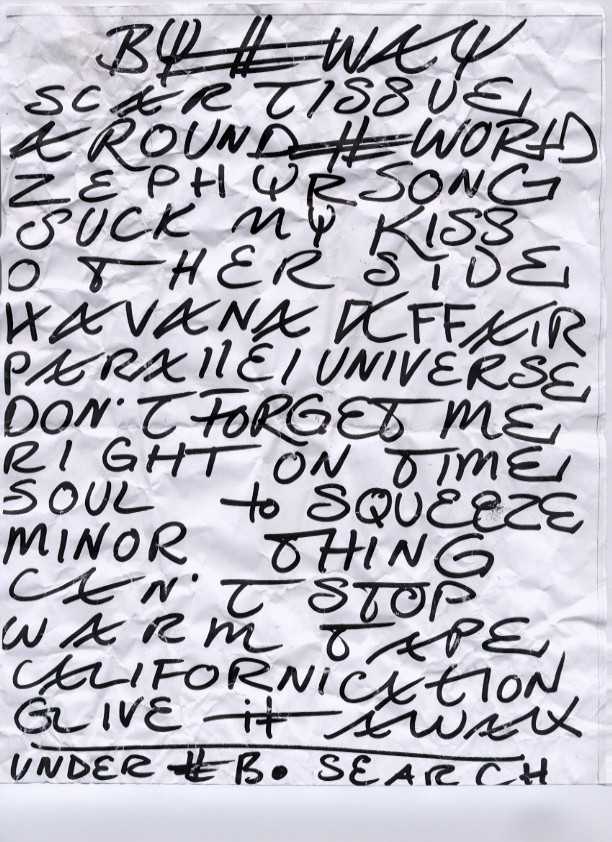 BY # WAY
SCAR TISSUE
AROUND # WORLD
ZEPHYR SONG
SUCK MY KISS
OTHERSIDE
HAVANA AFFAIR
PARAllEl UNIVERSE
DON'T FORGET ME
RIGHT ON TIME
SOUL to SQUEEZE
MINOR THING
CAN'T STOP
WARM TAPE
CALIFORNICATION
GIVE it AWAY
UNDER # B. SEARCH